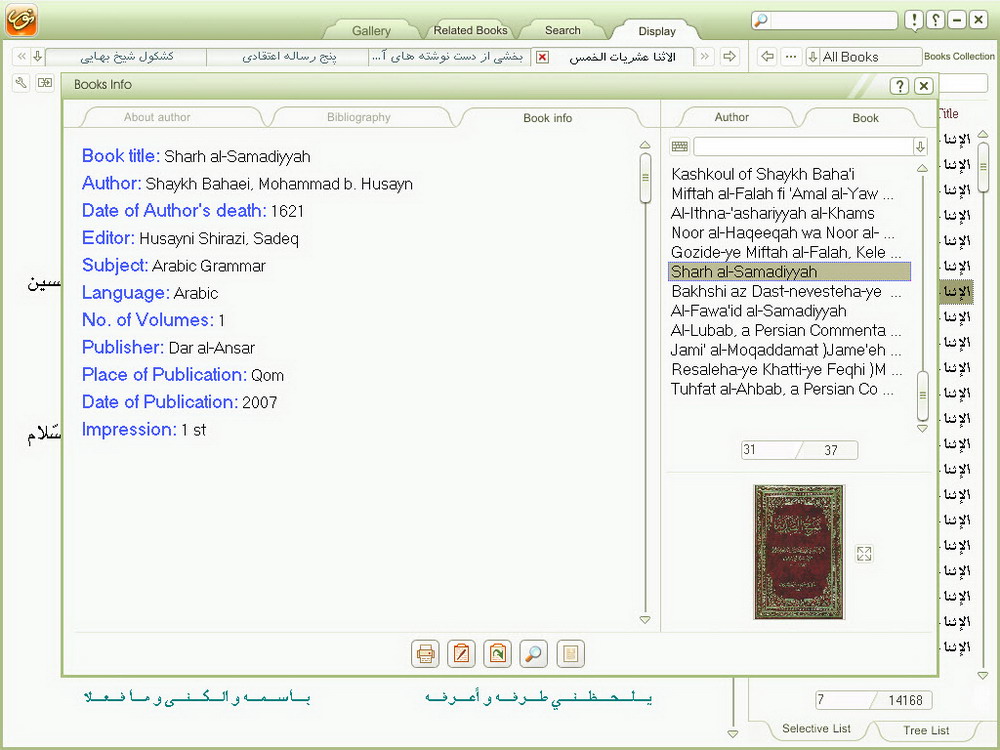 Gallery
Related Books
Search
Display
کشکول شیخ بهایی
پنج رساله اعتقادی
بخشی از دست نوشته های آ...
الاثنا عشریات الخمس
All Books
Books Collection
Books Info
About author
Bibliography
Book info
Author
Book
Book title: Sharh al-Samadiyyah
Author: Shaykh Bahaei, Mohammad b. Husayn
Date of Author's death: 1621
Editor: Husayni Shirazi, Sadeq
Subject: Arabic Grammar
Language: Arabic
No. of Volumes: 1
Publisher: Dar al-Ansar
Place of Publication: Qom
Date of Publication: 2007
Impression: 1 st
Kashkoul of Shaykh Baha'i
Miftah al-Falah fi 'Amal al-Yaw ...
Al-Ithna-'ashariyyah al-Khams
Noor al-Haqeeqah wa Noor al- ...
Gozide-ye Miftah al-Falah, Kele ...
Sharh al-Samadiyyah
Bakhshi az Dast-nevesteha-ye ...
Al-Fawa'id al-Samadiyyah
Al-Lubab, a Persian Commenta ...
Jami' al-Moqaddamat )Jame'eh ...
Resaleha-ye Khatti-ye Feqhi )M ...
Tuhfat al-Ahbab, a Persian Co ...
31 / 37
Title
الإثنا
الإثنا
الإثنا
الإثنا
الإثنا
الإثنا
الإثنا
الإثنا
الإثنا
الإثنا
الإثنا
الإثنا
الإثنا
الإثنا
الإثنا
الإثنا
الإثنا
الإثنا
الإثنا
الإثنا
الإثنا
يلحظني طرفه و أعرفه
باسمه و الكنى و ما فعلا
7 / 14168
Selective List
Tree List